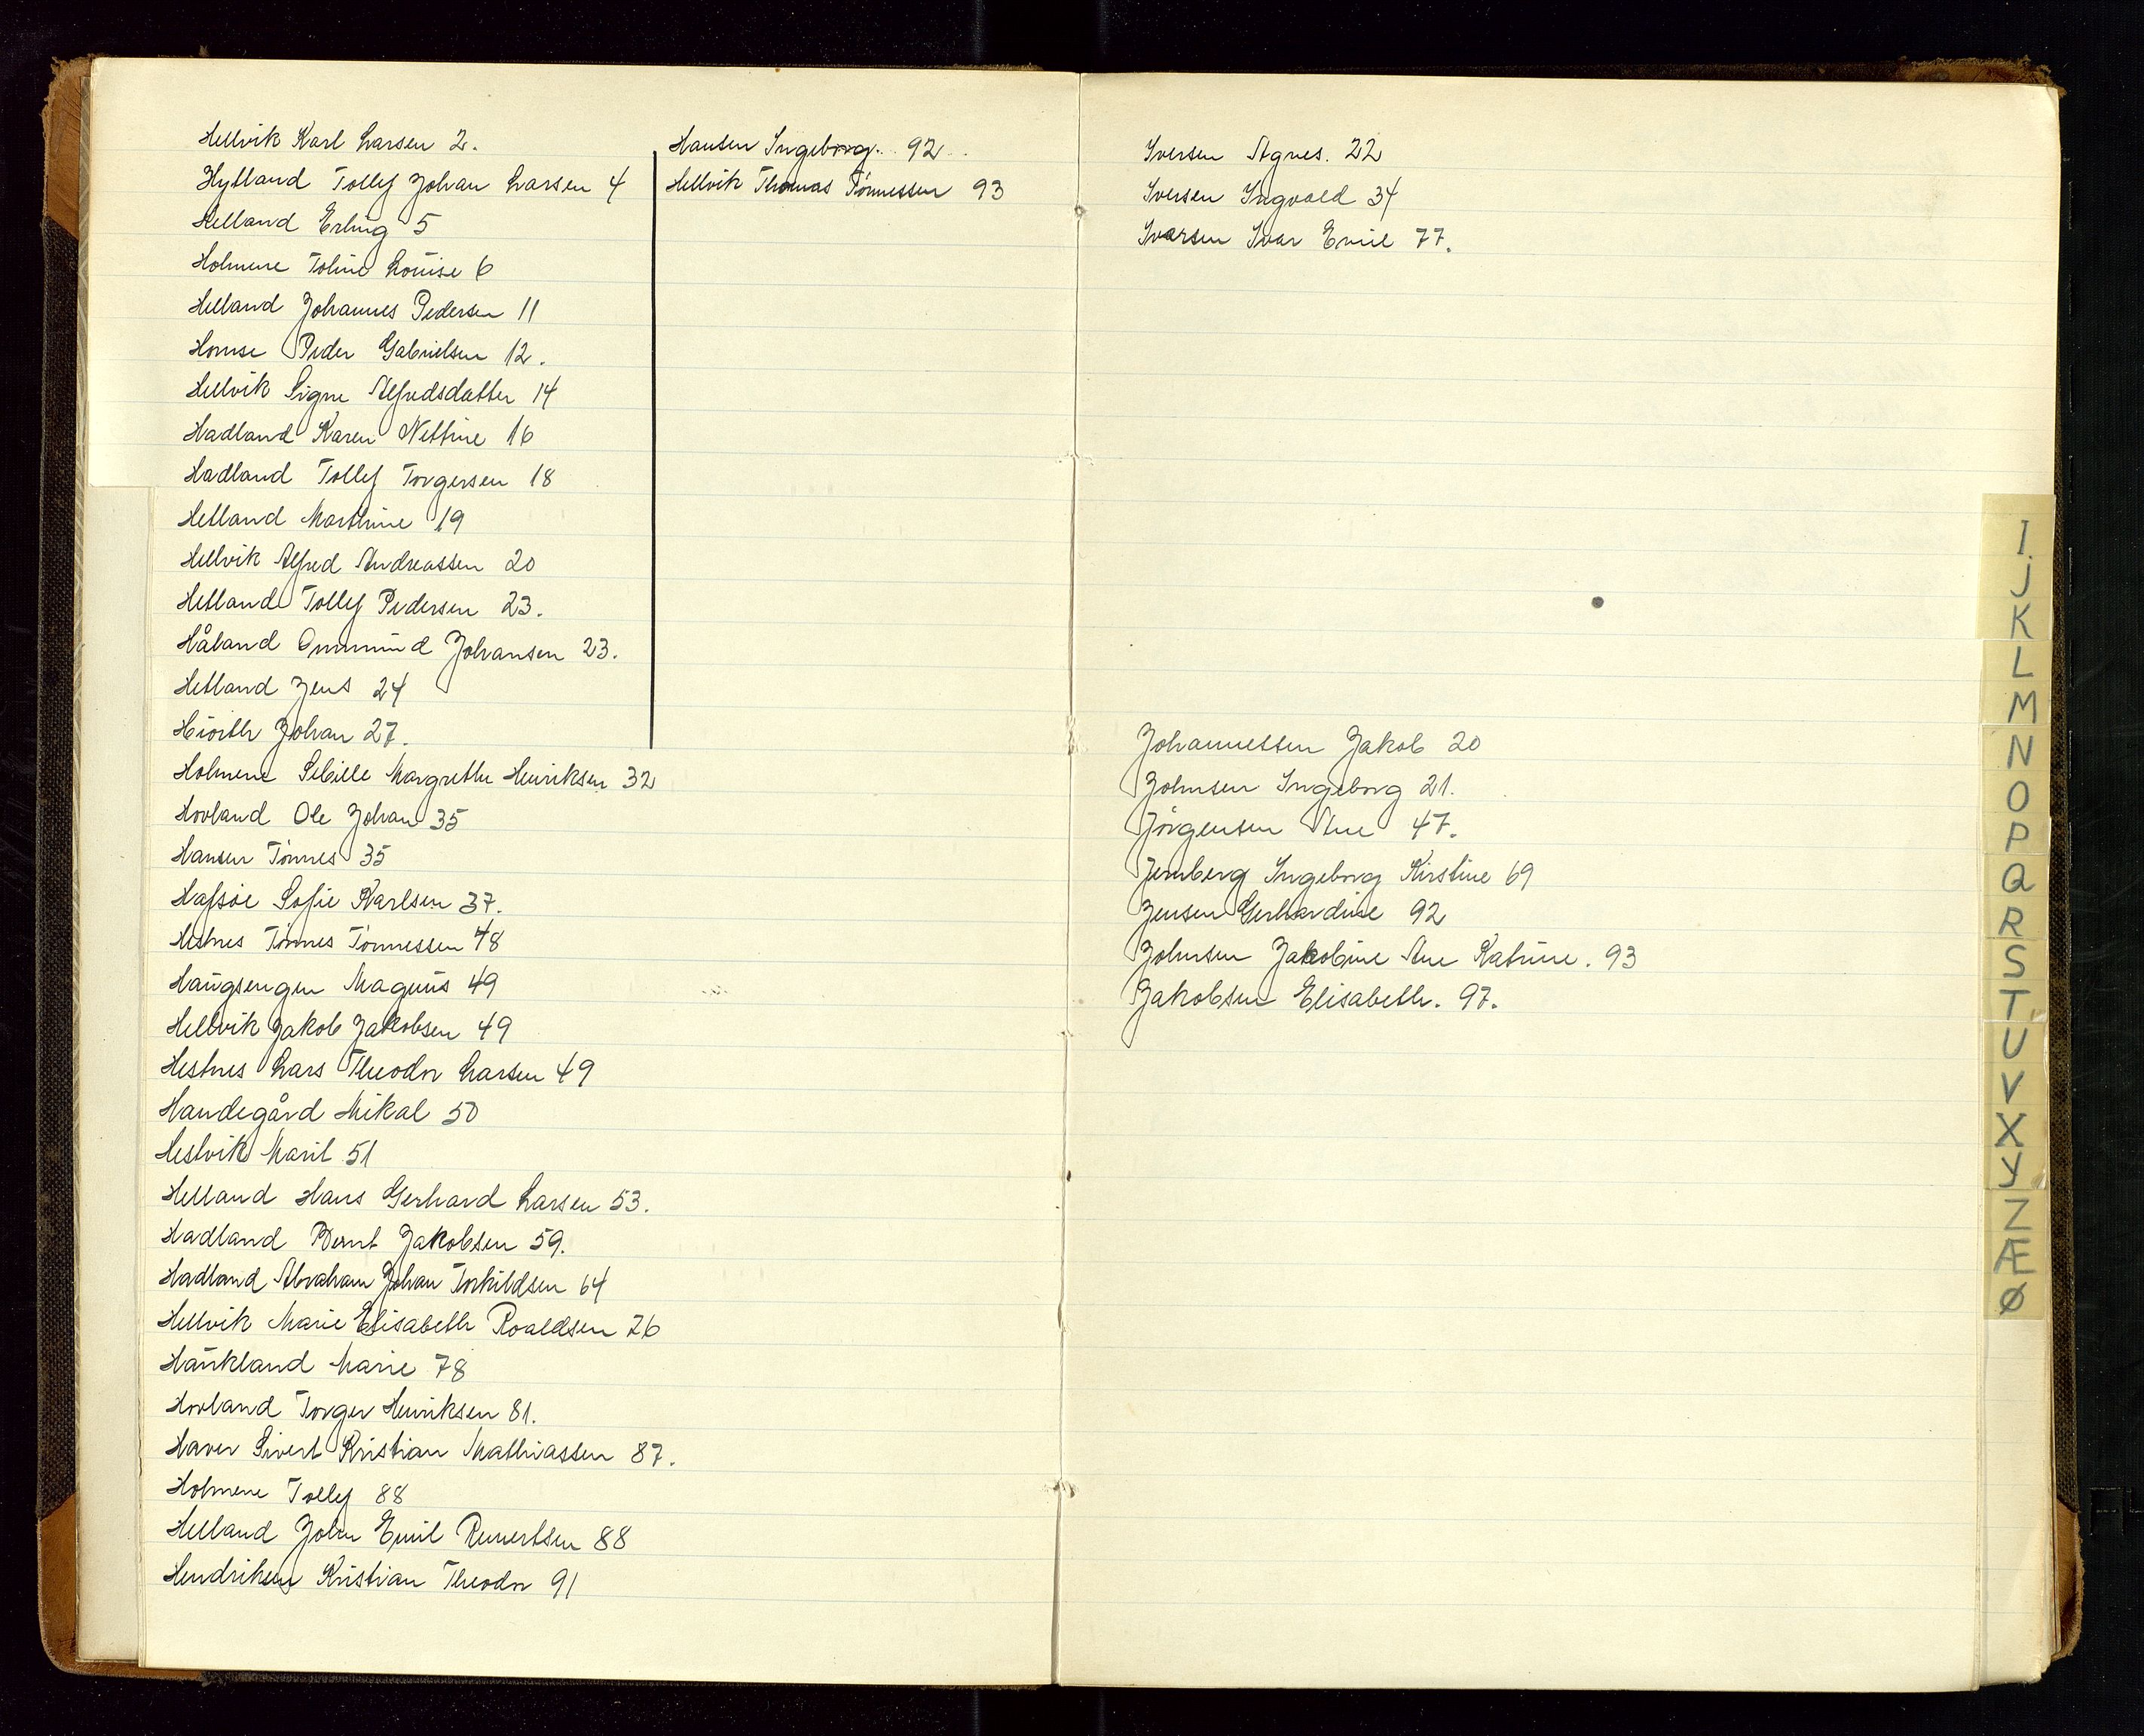 Hellvik Karl Larsen 2.
Hylland Tollef Johan Larsen 4
Helland Erling 5
Holmene Toline Louise 6
Helland Johannes Pedersen 11
Homse Peder Gabrielsen 12.
Hellvik Signe Alfredsdatter 14
Hadland Karen Nettine 16
Hadland Tollef Torgersen 18
Hetland Marthine 19
Hellvik Alfred Andreassen 20
Hetland Tollef Pedersen 23.
Håland Ommund Johansen 23.
Hetland Jens 24
Hiorth Johan 27.
Holmene Sebille Margrethe Henriksen 32
Hovland Ole Johan 35
Hansen Tönnes 35
Hafsöe Sofie Karlsen 37.
Hestnes Tönnes Tönnessen 48
Haugsengen Magnus 49
Hellvik Jakob Jakobsen 49
Hestnes Lars Theodor Larsen 49
Handegård Mikal 50
Hestvik Marit 51
Helland Hans Gerhard Larsen 53.
Hadland Bernt Jakobsen 59.
Hadland Abraham Johan Torkildsen 64
Hellvik Marie Elisabeth Roaldsen 76
Haukland Marie 78
Hovland Torger Henriksen 81.
Haver Sivert Kristian Mathiassen 87.
Holmene Tollef 88
Helland John Emil Reinertsen 88
Hendriksen Kristian Theodor 91
Hansen Ingeborg. 92.
Hellvik Thomas Tönnessen 93
Iversen Agnes. 22
Iversen Ingvald 34
Ivarsen Ivar Emil 77.
Johannessen Jakob 20
Johnsen Ingeborg 21.
Jörgensen Ane 47.
Jernberg Ingeborg Kirstine 69
Jensen Gerhardine 92
Johnsen Jakobine Ane Katrine. 93
Jakobsen Elisabeth. 97.
I.
J
K
L
M
N
O
P
Q
R
S
T
U
V
X
Y
Z
Æ
Ø